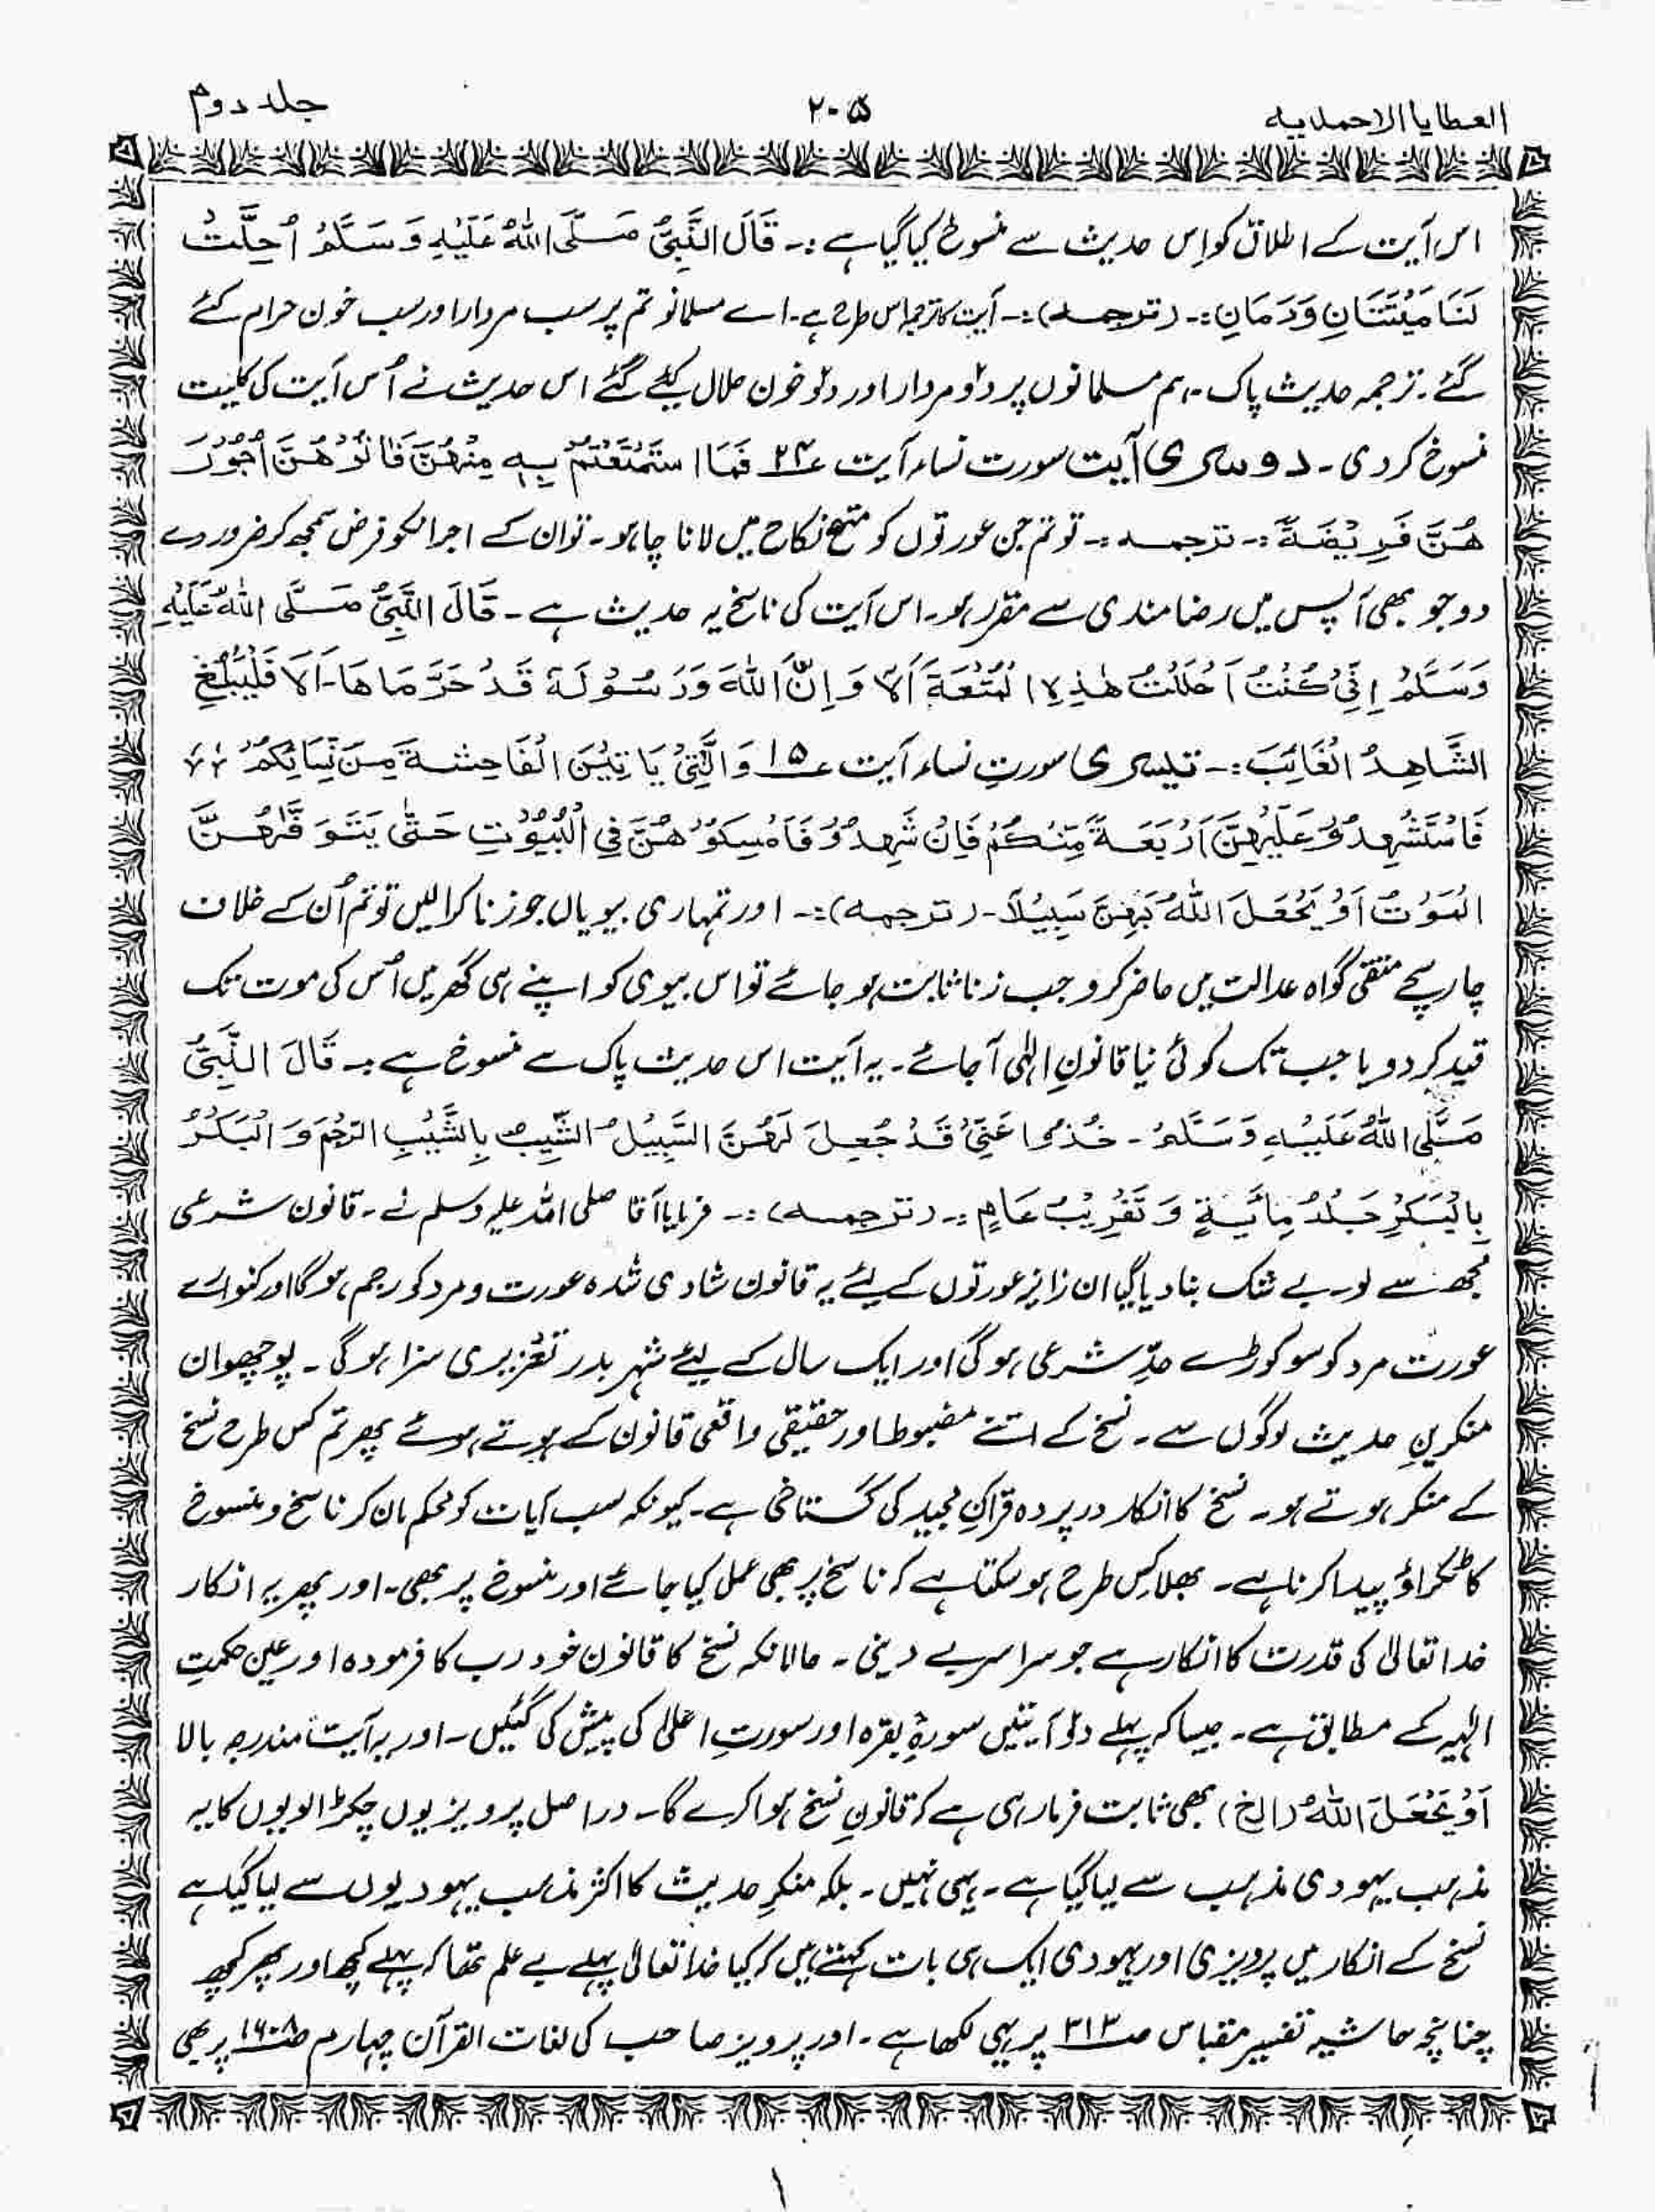 العطایا الاحمدیہ ۲۰۵ جلد دوم
اس آیت کے اطلاق کو اِس حدیث سے منسوخ کیا گیا ہے :۔ قَالَ النَّبِیُّ صَلَّی اللہُ عَلَیْہِ وَسَلَّمُ اُحِلَّتْ
لَنَا مَیْتَتَانِ وَدَمَانِ :۔ (ترجمہ) :۔ آیت کا ترجمہ اس طرح ہے۔ اے مسلمانو تم پر سب مردار اور سب خون حرام کئے
گئے۔ ترجمہ حدیث پاک۔ ہم مسلمانوں پر دلو مردار اور دلو خون حلال کیئے گئے اس حدیث نے اُس آیت کی کلیت
منسوخ کر دی ۔ دوسری آیت سورت نساء آیت ع۲۴ فَمَا اسْتَمْتَعْتُمْ بِہٖ مِنْھُنَّ فَاٰتُوْھُنَّ اُجُوْرَ
ھُنَّ فَرِیْضَۃً :۔ ترجمہ :۔ تو تم جن عورتوں کو متع نکاح میں لانا چاہو۔ تو ان کے اجر انکو فرض سمجھ کر ضرور دے
دو جو بھی آپس میں رضا مندی سے مقرر ہو۔ اس آیت کی ناسخ یہ حدیث ہے ۔ قَالَ النَّبِیُّ صَلَّی اللہُ عَلَیْہِ
وَسَلَّمُ اِنِّیْ کُنْتُ اَحْلَلْتُ ھٰذِہِ الْمُتْعَۃَ اَلَا وَاِنَّ اللہَ وَرَسُوْلَہٗ قَدْ حَرَّمَاھَا۔ اَلَا فَلْیُبَلِّغِ
الشَّاھِدُ الْغَائِبَ :۔ تیسری سورتِ نساء آیت ع۱۵ وَالّٰتِیْ یَاْتِیْنَ الْفَاحِشَۃَ مِنْ نِّسَائِکُمْ
فَاسْتَشْھِدُوْ عَلَیْھِنَّ اَرْبَعَۃً مِّنْکُمْ فَاِنْ شَھِدُوْ فَاَمْسِکُوْ ھُنَّ فِی الْبُیُوْتِ حَتّٰی یَتَوَفَّھُنَّ
الْمَوْتُ اَوْ یَجْعَلَ اللہُ لَھُنَّ سَبِیْلًا۔ (ترجمہ) :۔ اور تمہاری بیویاں جو زنا کرا لیں تو تم اُن کے خلاف
چار سچے متقی گواہ عدالت میں حاضر کرو جب زنا ثابت ہو جائے تو اس بیوی کو اپنے ہی گھر میں اُس کی موت تک
قید کر دو یا جب تک کوئی نیا قانونِ الٰہی آ جائے۔ یہ آیت اس حدیث پاک سے منسوخ ہے :۔ قَالَ النَّبِیُّ
صَلَّی اللہُ عَلَیْہِ وَسَلَّمُ ۔ خُذُوْا عَنِّیْ قَدْ جُعِلَ لَھُنَّ السَّبِیْلُ الثَّیِّبُ بِالثَّیِّبِ الرَّجْمُ وَالْبَکَرُ
بِالْبَکَرِ جَلْدُ مِائَۃٍ وَتَغْرِیْبُ عَامٍ :۔ (ترجمہ) :۔ فرمایا آقا صلی اللہ علیہ وسلم نے۔ قانون شرعی
مجھ سے لو۔ بے شک بنا دیا گیا ان زانیہ عورتوں کے لیئے یہ قانون شادی شدہ عورت و مرد کو رجم ہو گا اور کنوارے
عورت مرد کو سو کوڑے حدِّ شرعی ہو گی اور ایک سال کے لیئے شہر بدر تعزیری سزا ہو گی ۔ پوچھو ان
منکرینِ حدیث لوگوں سے۔ نسخ کے اتنے مضبوط اور حقیقی واقعی قانون کے ہوتے ہوئے پھر تم کس طرح نسخ
کے منکر ہوتے ہو۔ نسخ کا انکار در پردہ قرآنِ مجید کی گستاخی ہے۔ کیونکہ سب آیات کو محکم مان کر ناسخ و منسوخ
کا ٹکراؤ پیدا کرنا ہے۔ بھلا کِس طرح ہو سکتا ہے کہ ناسخ پر بھی عمل کیا جائے اور منسوخ پر بھی۔ اور پھر یہ انکار
خدا تعالیٰ کی قدرت کا انکار ہے جو سراسر بے دینی۔ حالانکہ نسخ کا قانون خود رب کا فرمودہ اور عین حکمتِ
الٰہیہ کے مطابق ہے۔ جیسا کہ پہلے دلو آیتیں سورۃِ بقرہ اور سورتِ اعلیٰ کی پیش کی گئیں۔ اور یہ آیت مندرجہ بالا
اَوْ یَجْعَلَ اللہُ (الخ) بھی ثابت فرما رہی ہے کہ قانونِ نسخ ہوا کرے گا۔ دراصل پرویزیوں چکڑالویوں کا یہ
مذہب یہودی مذہب سے لیا گیا ہے۔ یہی نہیں۔ بلکہ منکرِ حدیث کا اکثر مذہب یہودیوں سے لیا گیا ہے
نسخ کے انکار میں پرویزی اور یہودی ایک ہی بات کہتے ہیں کہ کیا خدا تعالیٰ پہلے بے علم تھا کہ پہلے کچھ اور پھر کچھ
چنانچہ حاشیہ تفسیر مقباس صـ۳۱۳ پر یہی لکھا ہے۔ اور پرویز صاحب کی لغات القرآن چہارم صـ۱۶۰۸ پر بھی